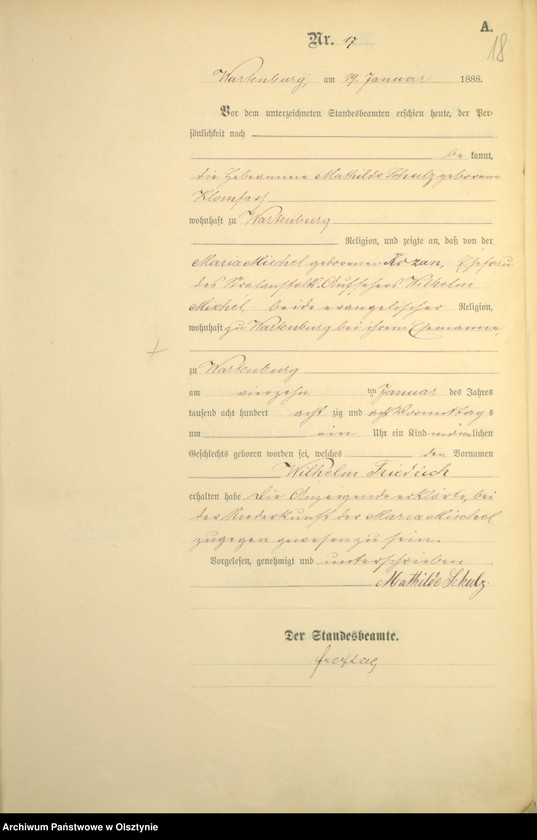 A.
18
Nr. 17
Wartenburg, am 19. Januar 1888.
Vor dem unterzeichneten Standesbeamten erschien heute, der Per-
sönlichkeit nach
be kannt,
die Hebeamme Mathilde Schulz geborene
Klomfaß
wohnhaft zu Wartenburg
Religion, und zeigte an, daß von der
Maria Mischel geborenen Rozan, Ehefrau
des Strafanstalts-Aufsehers Wilhelm
Mischel, beide evangelischer Religion,
wohnhaft zu Wartenburg bei ihrem Ehemanne,
zu Wartenburg
am vierzehn ten Januar des Jahres
tausend acht hundert acht zig und acht Vormittag s
um ein Uhr ein Kind männlichen
Geschlechts geboren worden sei, welches den Vornamen
Wilhelm Friedrich
erhalten habe. Die Anzeigende erklärte, bei
der Niederkunft der Maria Mischel
zugegen gewesen zu sein.
Vorgelesen, genehmigt und unterschrieben
Mathilde Schulz
Der Standesbeamte.
Freytag
Archiwum Państwowe w Olsztynie